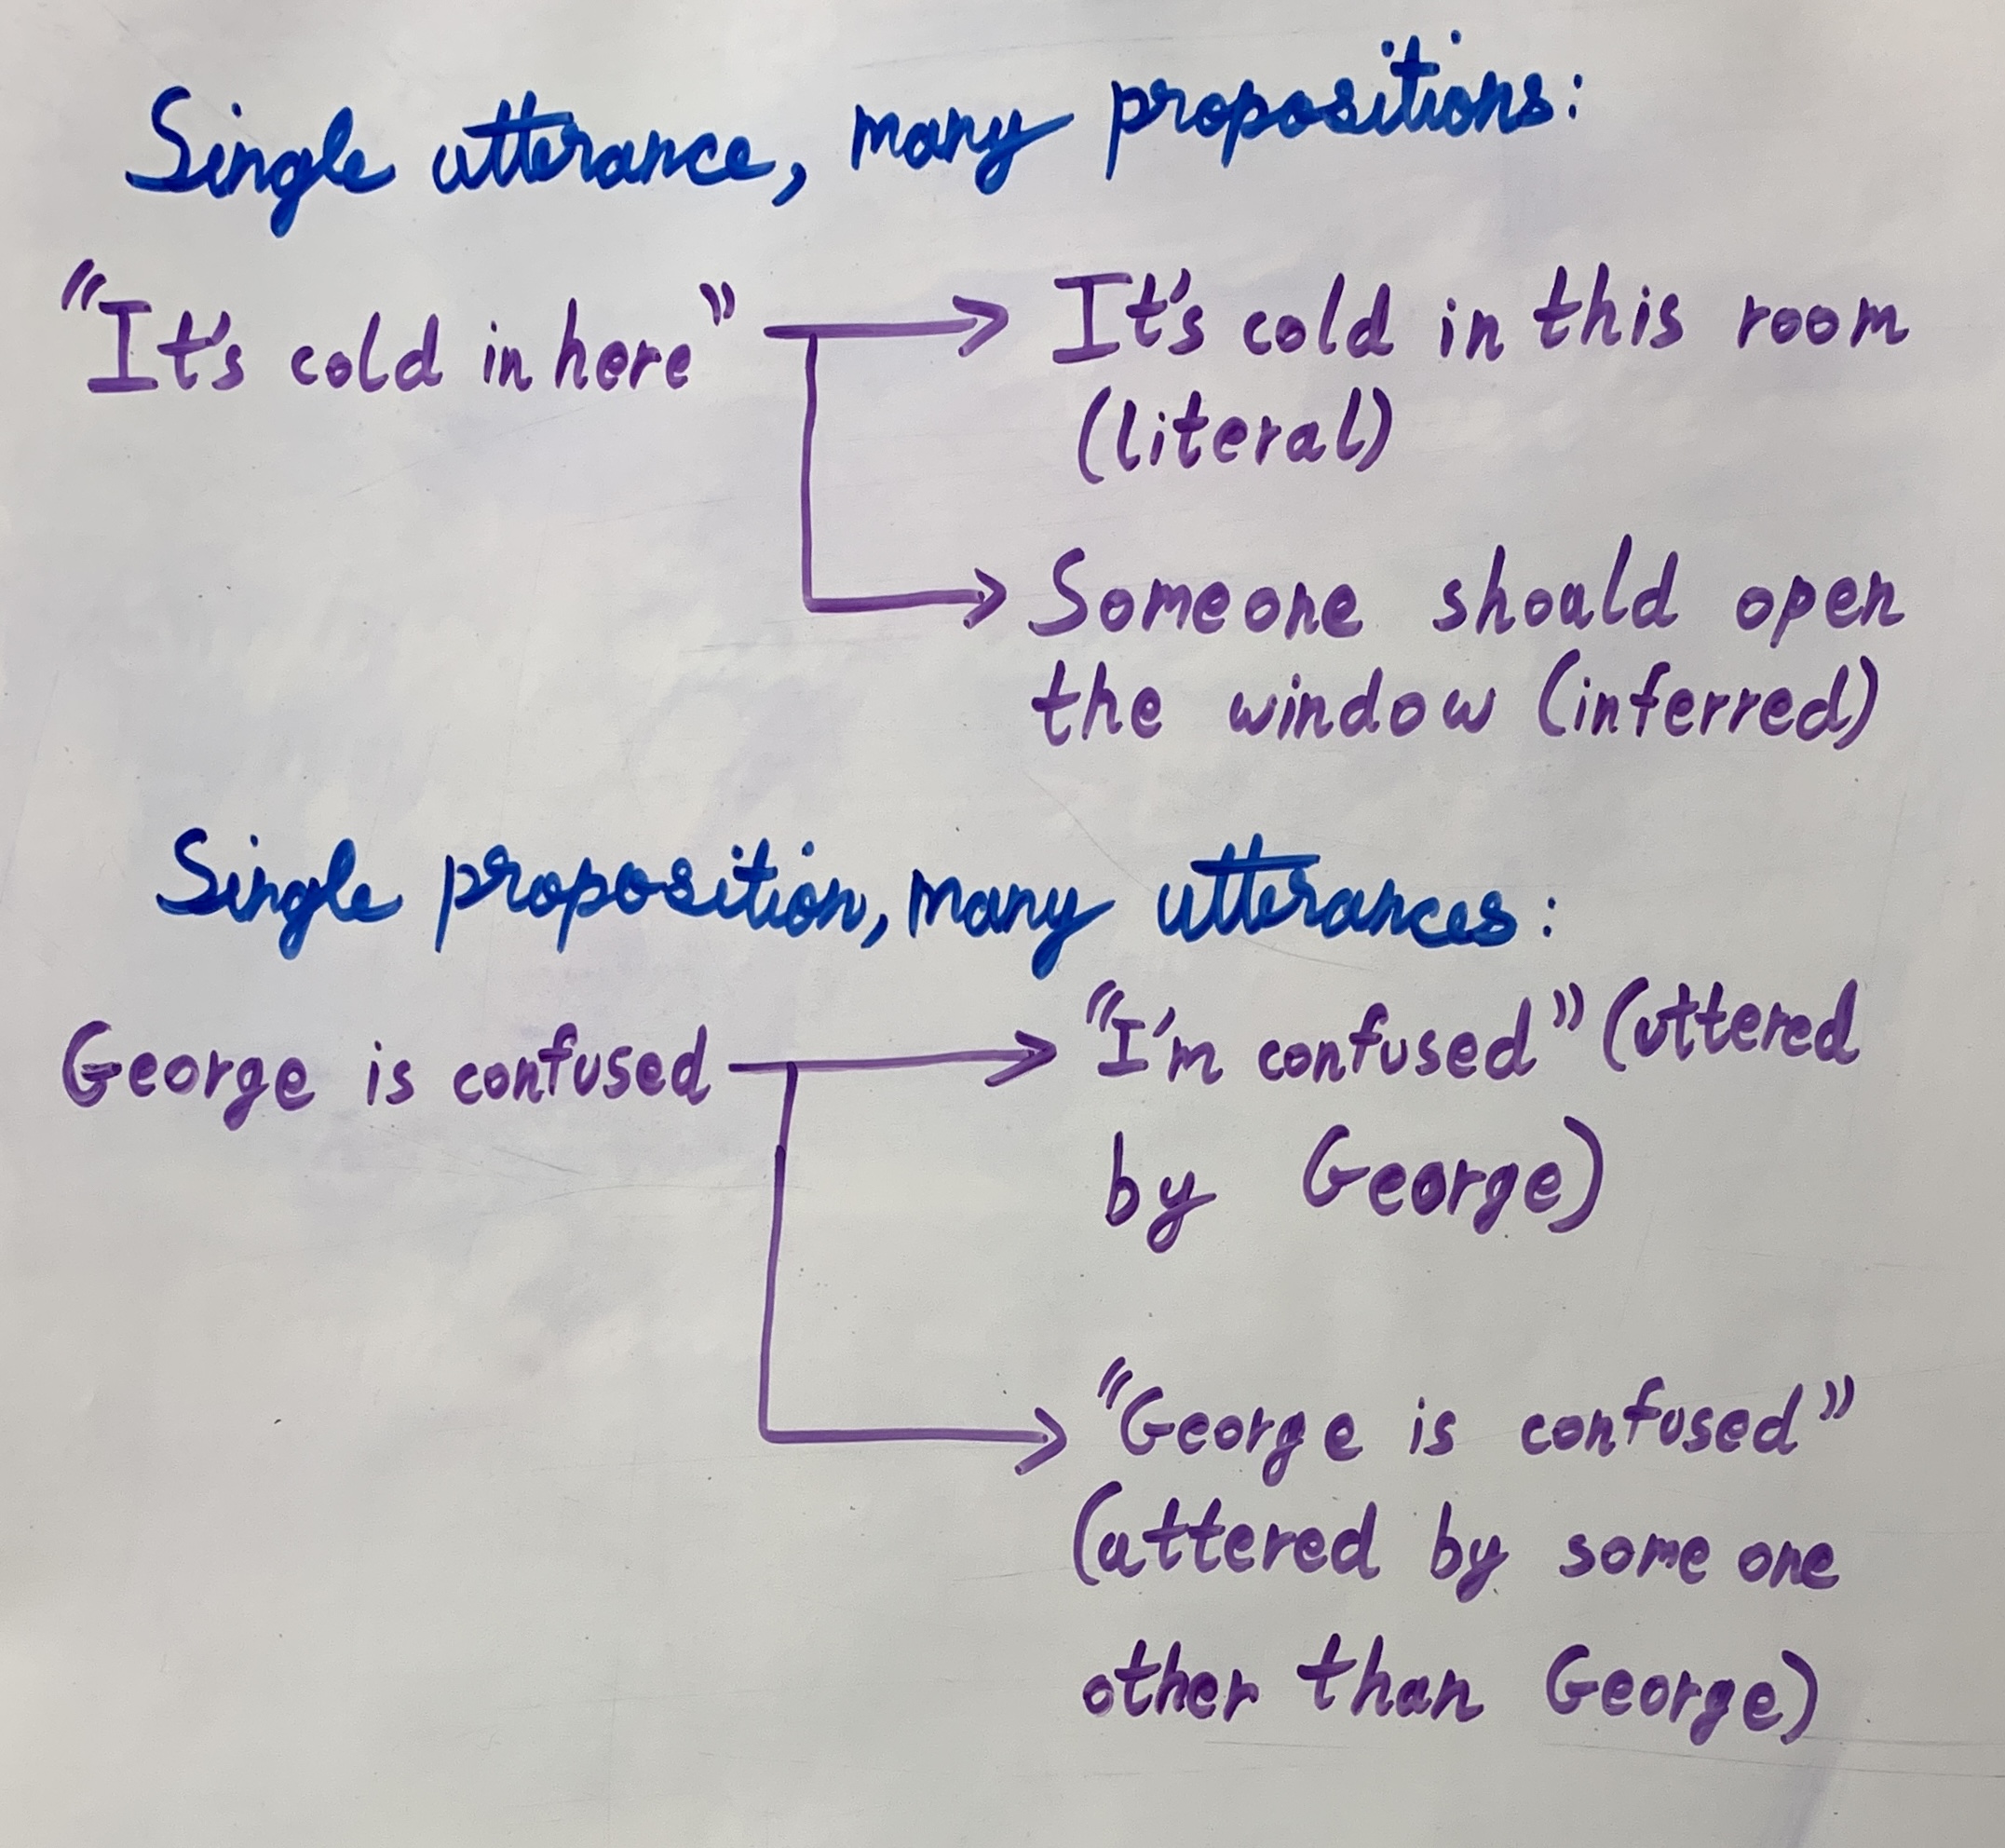 Single utterance, many propositions:
"It's cold in here"
It's cold in this room
(literal)
Someone should open
the window (inferred)
Single proposition, many utterances:
George is confused
"I'm confused" (uttered
by George)
"George is confused"
(uttered by some one
other than George)